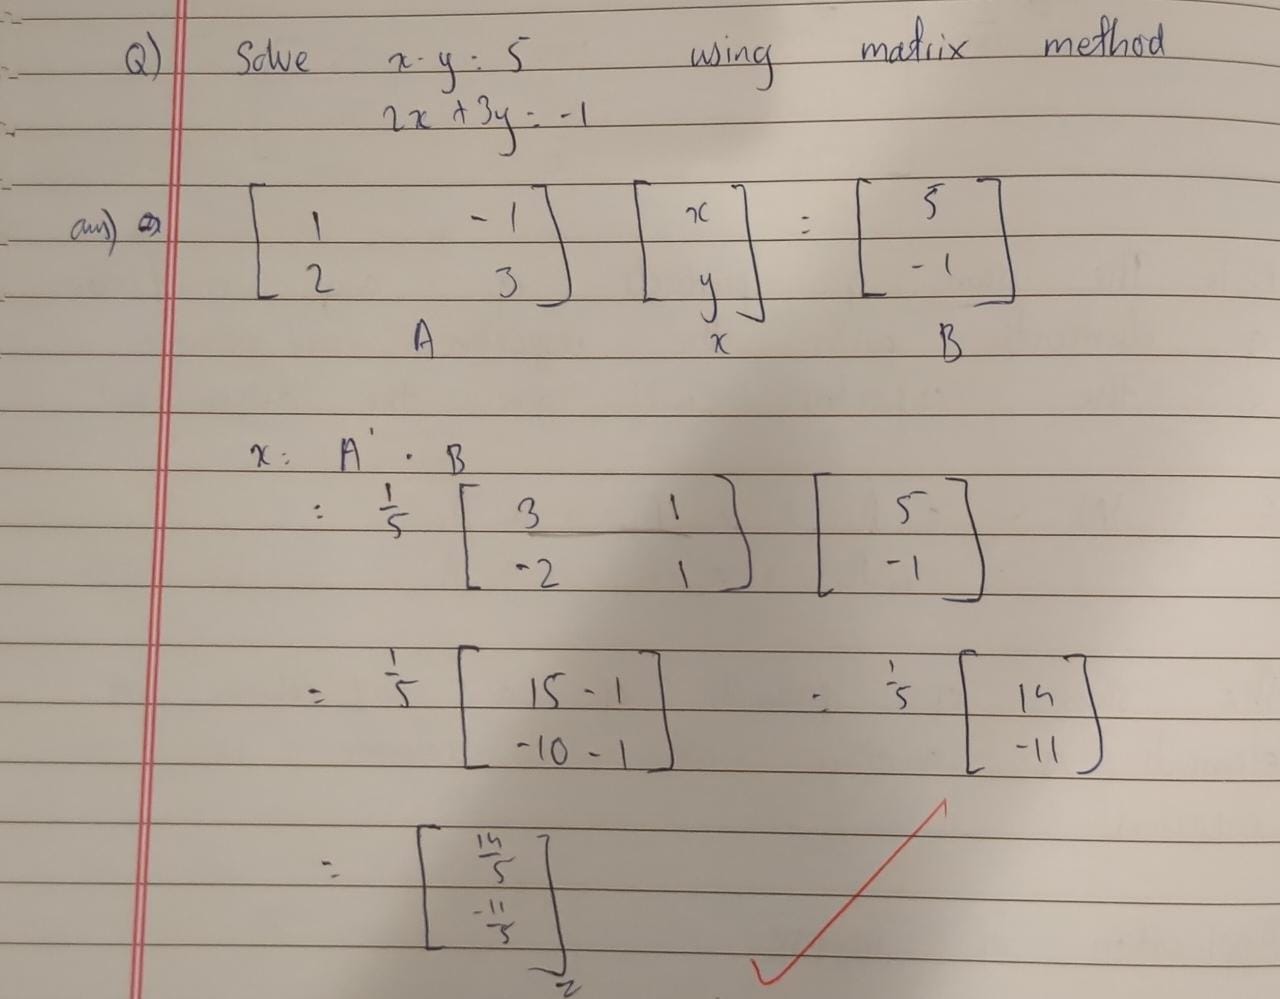 Q) Solve x - y = 5 using matrix method
2x + 3y = -1
ans) [ 1 -1 ] [ x ] = [ 5 ]
[ 2 3 ] [ y ] [ -1 ]
A x B
x = A' . B
= 1/5 [ 3 1 ] [ 5 ]
[ -2 1 ] [ -1 ]
= 1/5 [ 15 - 1 ] = 1/5 [ 14 ]
[ -10 - 1 ] [ -11 ]
= [ 14/5 ]
[ -11/5 ]